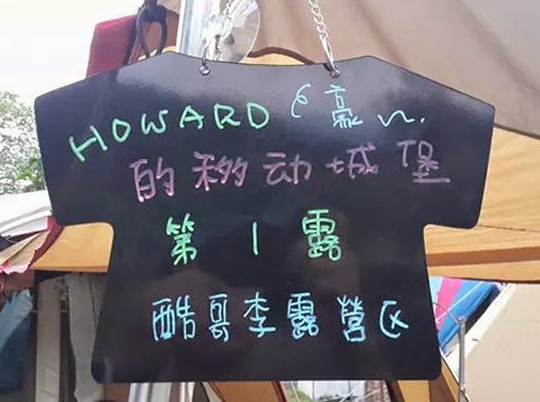 HOWARD 豪
的移动城堡
第1露
酷哥李露營区